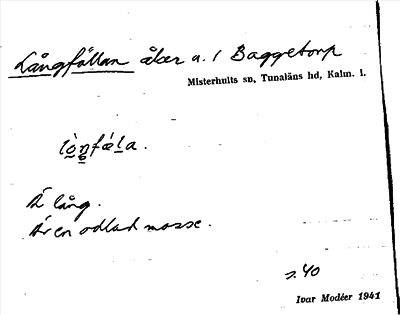 Långfällan åker u. / Baggetorp
Misterhults sn, Tunaläns hd, Kalm. l.
lòŋfǽla.
Ä lång.
Är en odlad mosse.
s. 40
Ivar Modéer 1941